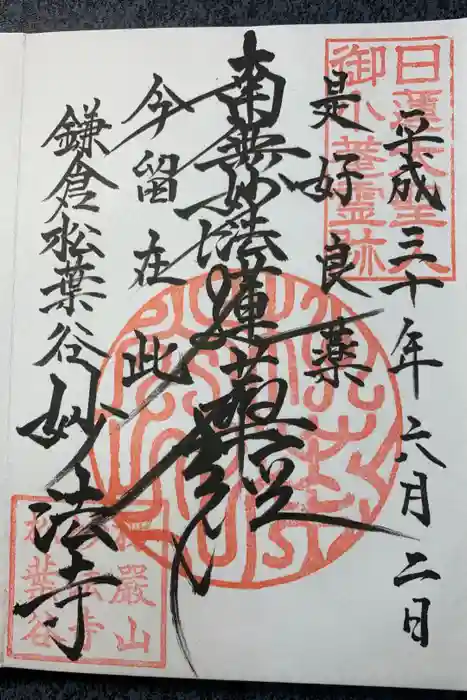 平成三十年六月二日
日蓮大聖人
御小菴霊跡
是好良薬
南無妙法蓮華経
今留在此
鎌倉松葉谷
妙法寺
楞厳山
妙法寺
松葉谷